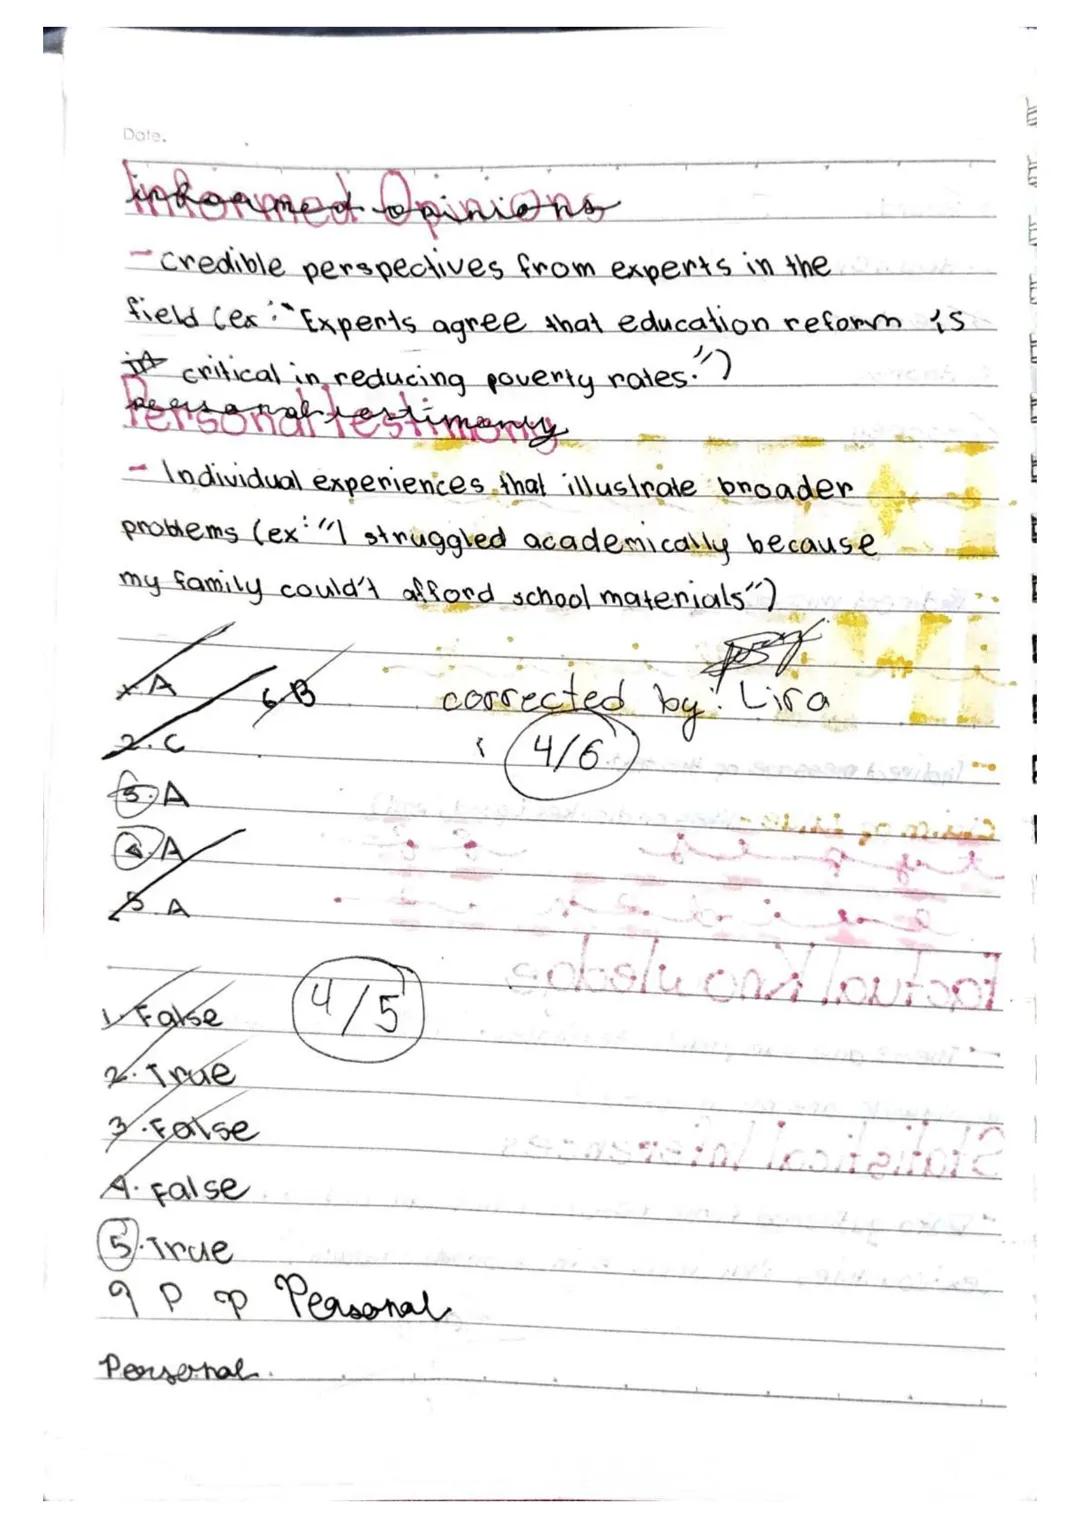 Date.
Informed Opinions
- credible perspectives from experts in the
field (ex: "Experts agree that education reform is
critical in reducing poverty rates.")
Personal Testimony
- Individual experiences that illustrate broader
problems (ex: "I struggled academically because
my family could't afford school materials")
1. A 6. B corrected by: Lira
2. C 4/6
3. A
4. A
5. A
1. False 4/5
2. True
3. False
4. False
5. True
q P p Personal
Personal.